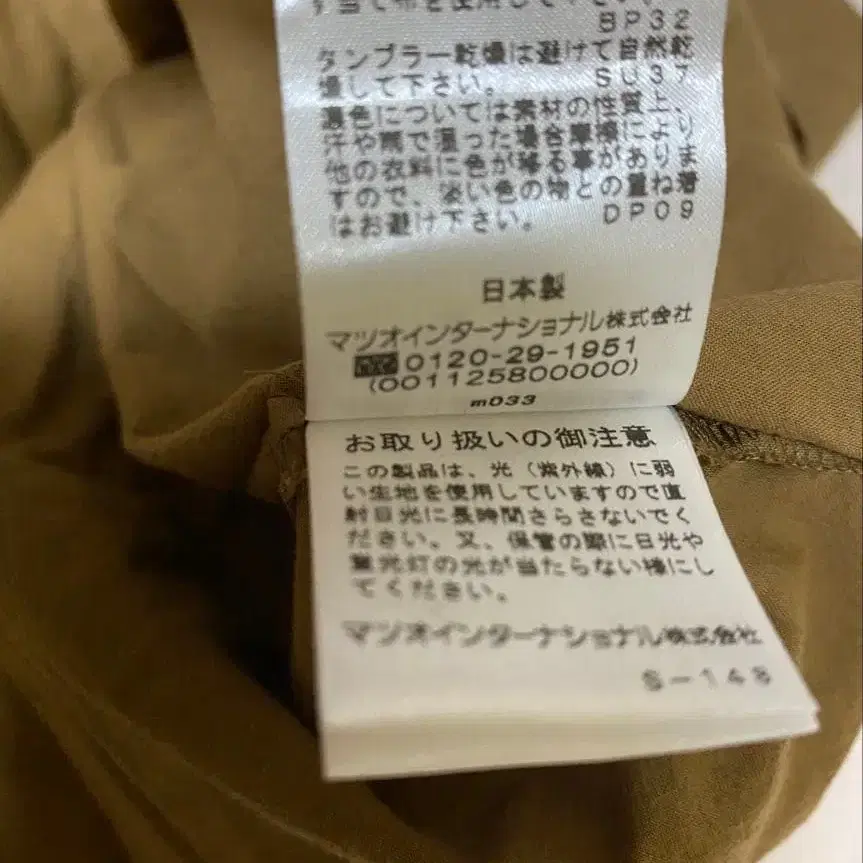 す当て布を使用して下さい。
BP32
タンブラー乾燥は避けて自然乾
燥して下さい。 SU37
濃色については素材の性質上、
汗や雨で湿った場合摩擦により
他の衣料に色が移る事がありま
すので、淡い色の物との重ね着
はお避け下さい。 DP09
日本製
マツオインターナショナル株式会社
0120-29-1951
(001125800000)
m033
お取り扱いの御注意
この製品は、光(紫外線)に弱
い生地を使用していますので直
射日光に長時間さらさないでく
ださい。又、保管の際に日光や
蛍光灯の光が当たらない様にし
てください。
マツオインターナショナル株式会社
S-148